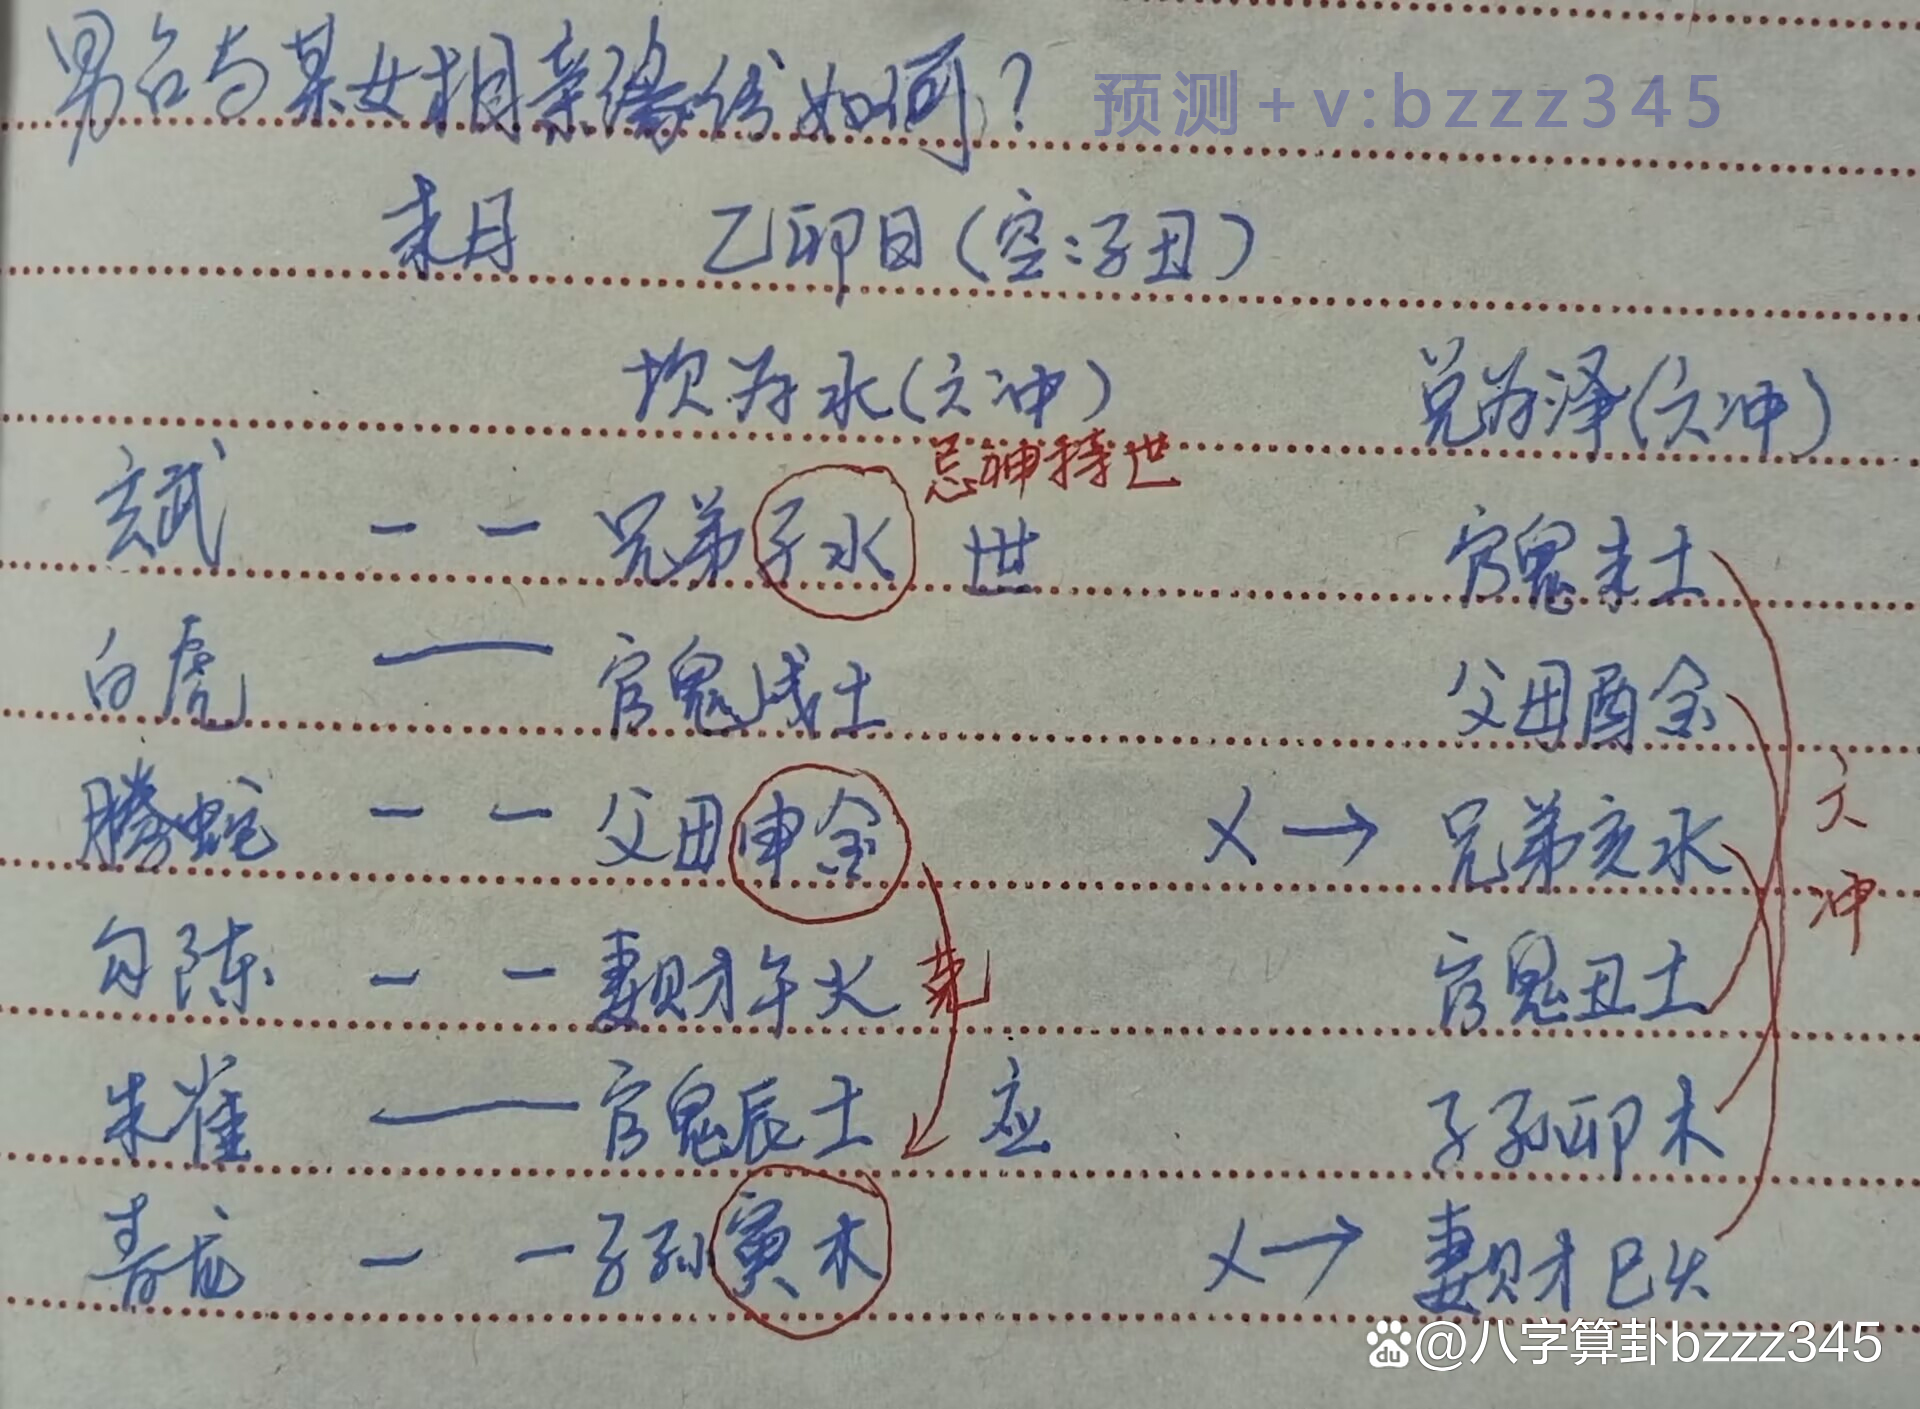 男占与某女相亲缘份如何？ 预测+v:bzzz345
未月 乙卯日（空：子丑）
坎为水（六冲） 兑为泽（六冲）
忌神持世
玄武 兄弟子水 世 官鬼未土
白虎 官鬼戌土 父母酉金
六冲
腾蛇 父母申金 X→ 兄弟亥水
勾陈 妻财午火 克 官鬼丑土
朱雀 官鬼辰土 应 子孙卯木
青龙 子孙寅木 X→ 妻财巳火
du @八字算卦bzzz345